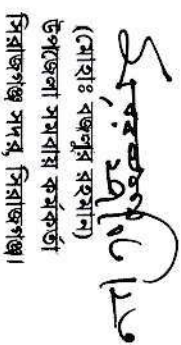 (মোহাঃ বজলুর রহমান)
উপজেলা সমবায় কর্মকর্তা
সিরাজগঞ্জ সদর, সিরাজগঞ্জ।